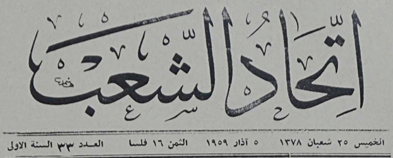 اتِّحَادُ الشَّعب
الخميس ٢٥ شعبان ١٣٧٨ ٥ آذار ١٩٥٩ الثمن ١٦ فلسا العدد ٣٣ السنة الاولى